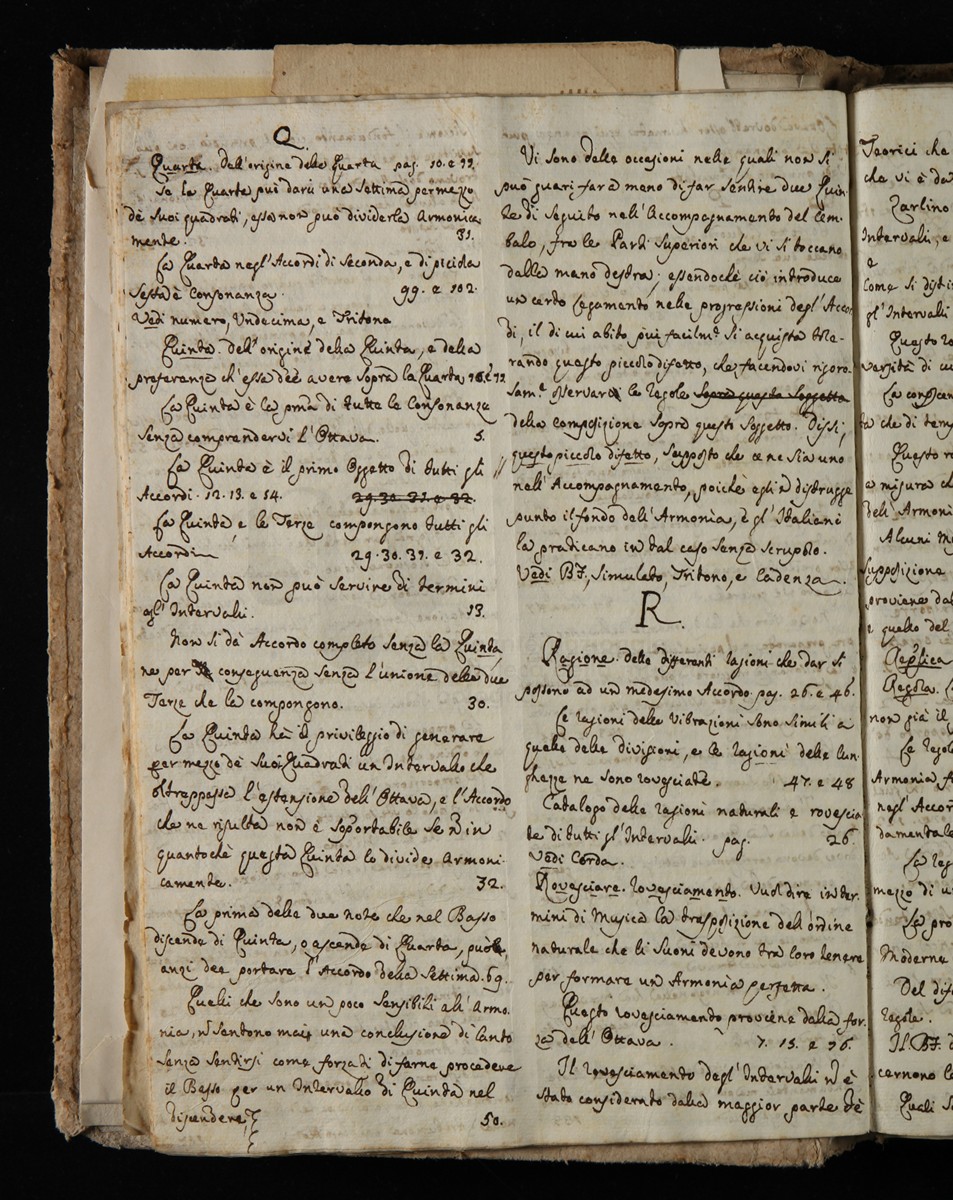 Q.
Quarta. Dell'origine della Quarta pag. 10. e 22.
Se la Quarta può darci una Settima per mezzo
de suoi quadrati, essa non può dividerla Armonica
mente. 31.
La Quarta negl'Accordi di Seconda, e di picciola
Sesta è Consonanza. 99. e 102.
Vedi numero, Undecima, e Tritono
Quinta. Dell'origine della Quinta, e della
preferenza ch'essa deè avere sopra la Quarta
La Quinta è la pma di tutte le Consonanze
Senza comprendervi l'Ottava. 5.
La Quinta è il primo Oggetto di tutti gli
Accordi. 12. 13. e 54. 29. 30. 31. e 32.
La Quinta, e le Terze compongono tutti gli
Accordi 29. 30. 31. e 32.
La Quinta non può servire di termini
agl'Intervalli. 13.
Non si dà Accordo completo senza la Quinta,
ne per conseguenza senza l'unione delle due
Terze che la compongono. 30.
La Quinta hà il privileggio di generare
per mezzo de suoi Quadrati un Intervallo che
oltrappassa l'estensione dell'Ottava, e l'Accordo
che ne risulta non è sopportabile se ñ in
quantochè questa Quinta lo divide Armoni
camente. 32.
La prima delle due note che nel Basso
discende di Quinta, o ascende di Quarta, può,
anzi dee portare l'Accordo della Settima. 69.
Quelli che sono un poco sensibili all'Armo.
nia, ñ sentono mai una conclusione di Canto
senza sentirsi come forzati di farne procedere
il Basso per un Intervallo di Quinta nel
discendere, 50.
Vi sono delle occasioni nelle quali non si
può guari fara meno di far sentire due Quin
te di seguito nell'Accompagnamento del Cem.
balo, fra le Parti Superiori che vi si toccano
dalla mano destra; essendochè ciò introduce
un certo legamento nelle progressioni degl'Accor
di, il di cui abito più facilm.e si acquista tole-
rando questo piccolo difetto, che facendovi rigoro.
sam.e osservare le regole sopra questo Soggetto
della composizione sopra questo soggetto. Dissi,
questo piccolo difetto, supposto che ce ne sia uno
nell'Accompagnamento, poichè egli ñ distrugge
punto il fondo dell'Armonia, è gl'Italiani
la praticano in tal caso senza scrupolo.
Vedi B.F., Simulato, Tritono, e Cadenza.
R.
Ragione. Delle differenti ragioni che dar si
possono ad un medesimo Accordo pag. 26. e 46.
Le ragioni delle Vibrazioni sono simili a
quelle delle divisioni, e le ragioni delle lun.
ghezze ne sono rovesciate. 47. e 48
Catalogo delle ragioni naturali e rovescia
te di tutti gl'Intervalli. pag. 26.
Vedi Corda.
Rovesciare. rovesciamento. Vuol dire in ter.
mini di Musica la trasposizione dell'ordine
naturale che li Suoni devono tra loro tenere
per formare un Armonia perfetta.
Questo rovesciamento proviene dalla for.
za dell'Ottava. 7. 15. e 16.
Il rovesciamento degl'Intervalli ñ è
stato considerato dalla maggior parte de
Teorici che
che vi è da
Zarlino
Intervalli, e
e
Come si disti
gl'Intervalli
Questo ro
versità di cu
La conoscen
za che di temp
Questo r
a misura ch
dell'Armoni
Alcuni M
supposizione
proviene dal
e quello del
Replica
Regola.
non già il
Le regol
Armonia f
negl'Accor
damentale
La reg
mezzo di u
La pro
Moderne
Del dif
regole.
Il B.F.
cernono le
Quali s